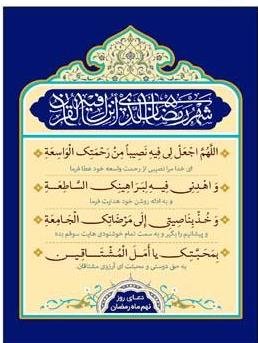 شهر رمضان الذي أنزل فيه القرآن
اللَّهُمَّ اجْعَلْ لِي فِيهِ نَصِيباً مِنْ رَحْمَتِكَ الْوَاسِعَةِ
ای خدا مرا نصیبی از رحمت واسعه خود عطا فرما
وَ اهْدِنِي فِيهِ لِبَرَاهِينِكَ السَّاطِعَةِ
و به ادله روشن خود هدایت فرما
وَ خُذْ بِنَاصِيَتِي إِلَى مَرْضَاتِكَ الْجَامِعَةِ
و پیشانیم را بگیر و به سمت تمام خوشنودی هایت سوقم بده
بِمَحَبَّتِكَ يَا أَمَلَ الْمُشْتَاقِينَ
به حق دوستی و محبتت ای آرزوی مشتاقان.
دعای روز
نهم ماه رمضان